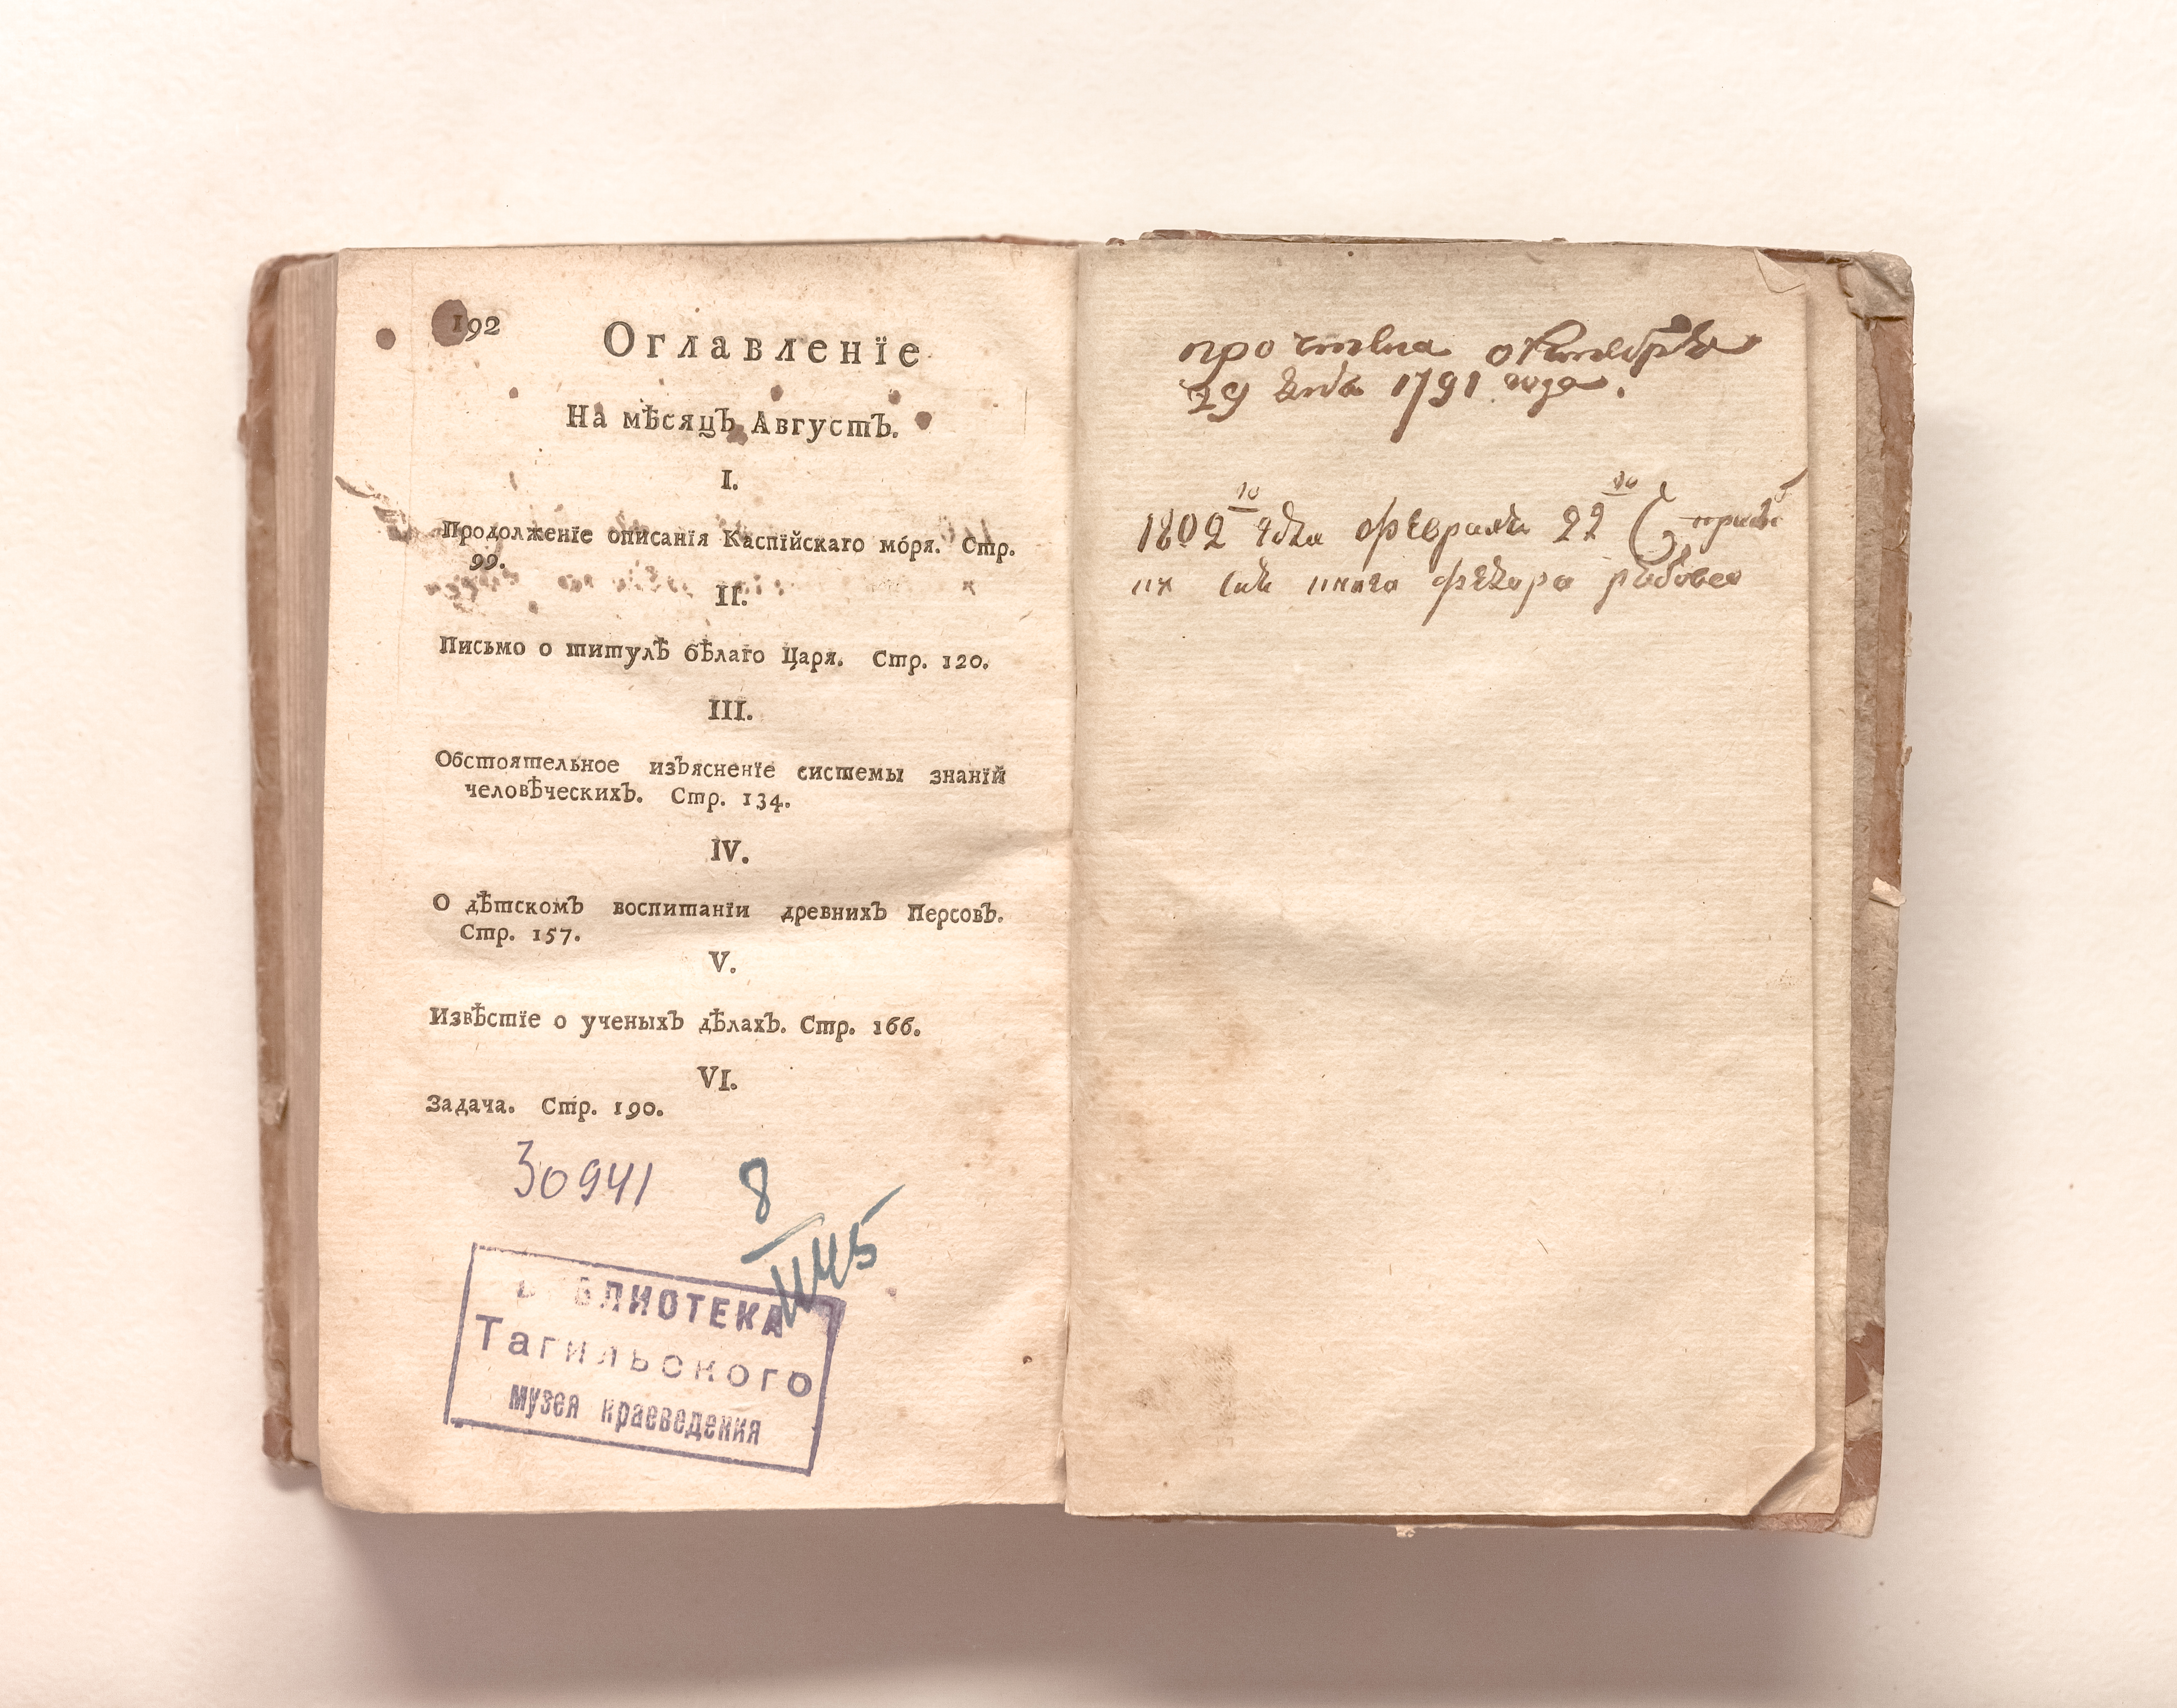 192
Оглавленїе
На мѣсяцъ Августъ.
I.
Продолженїе описанїя Каспїйскаго мо́ря. Стр.
99.
II.
Письмо о титулѣ бѣлаго Царя. Стр. 120.
III.
Обстоятельное изъясненїе системы знанїй
человѣческихъ. Стр. 134.
IV.
О дѣтскомъ воспитанїи древнихъ Персовъ.
Стр. 157.
V.
Извѣстїе о ученыхъ дѣлахъ. Стр. 166.
VI.
Задача. Стр. 190.
30941
8
БИБЛИОТЕКА
Тагильского
музея краеведения
октебря
29 1791 года.
1802 го февраля 22 го